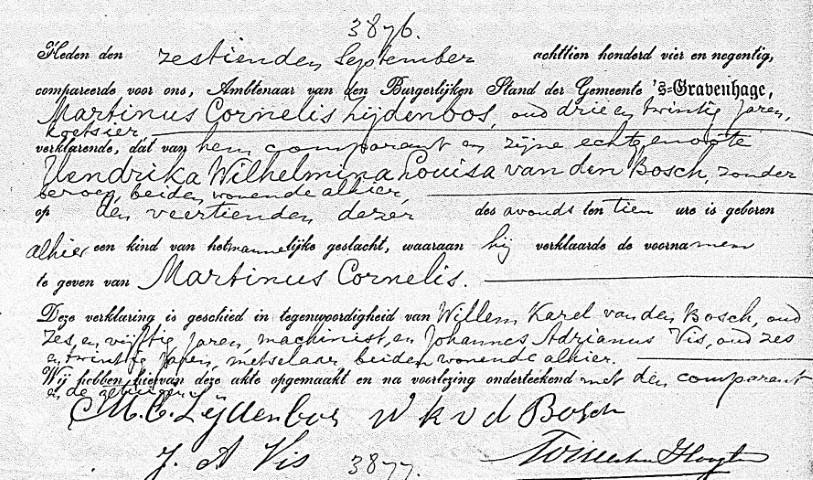 3876.
Heden den zestienden September achttien honderd vier en negentig,
compareerde voor ons, Ambtenaar van den Burgerlijken Stand der Gemeente 's-Gravenhage,
Martinus Cornelis Lijdenbos, oud drie en twintig jaren,
koetsier,
verklarende, dat van hem comparant en zijne echtgenoote
Hendrika Wilhelmina Louisa van den Bosch, zonder
beroep, beiden wonende alhier,
op den veertienden dezer des avonds ten tien ure is geboren
alhier een kind van het mannelijke geslacht, waaraan hij verklaarde de voornamen
te geven van Martinus Cornelis.
Deze verklaring is geschied in tegenwoordigheid van Willem Karel van den Bosch, oud
zes en vijftig jaren, machinist, en Johannes Adrianus Vis, oud zes
en twintig jaren, metselaar, beiden wonende alhier.
Wij hebben hiervan deze akte opgemaakt en na voorlezing onderteekend met den comparant
en de getuigen.
M. C. Lijdenbos W K v d Bosch
J. A Vis
3877.